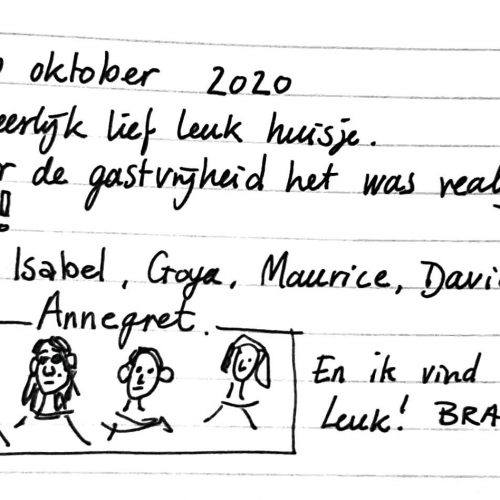 oktober 2020
lief leuk huisje.
de gastvrijheid het was
Isabel, Goya, Maurice,
Annegret.
En ik vind
Leuk!